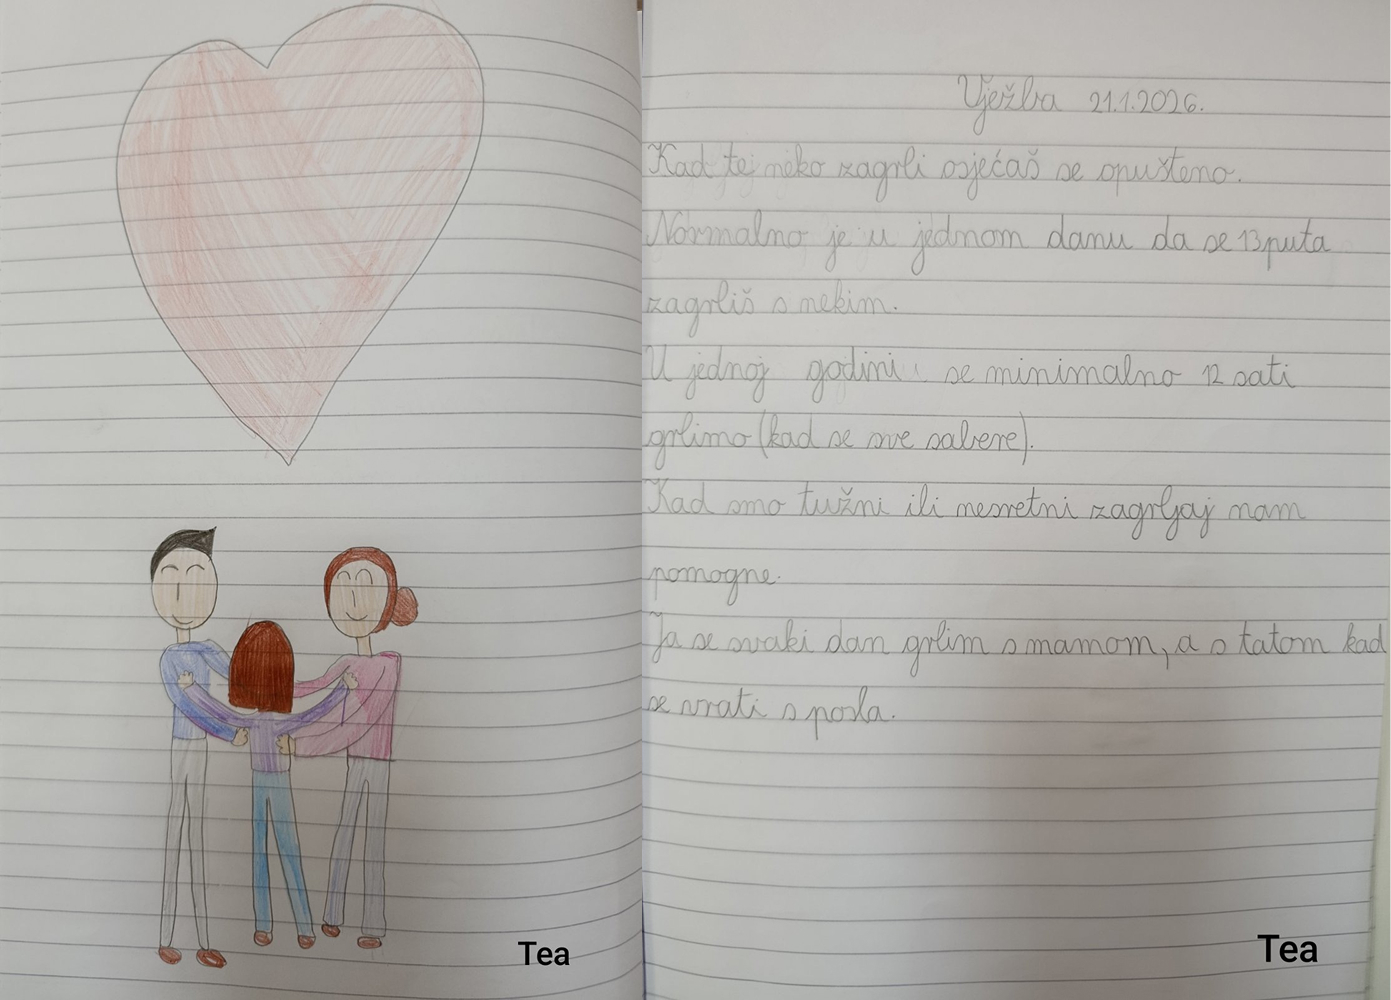 Vježba 21.1.2026.
Kad tej neko zagrli osjećaš se opušteno.
Normalno je u jednom danu da se 13 puta
zagrliš s nekim.
U jednoj godini se minimalno 12 sati
grlimo (kad se sve sabere).
Kad smo tužni ili nesretni zagrljaj nam
pomogne.
Ja se svaki dan grlim s mamom, a s tatom kad
se vrati s posla.
Tea
Tea